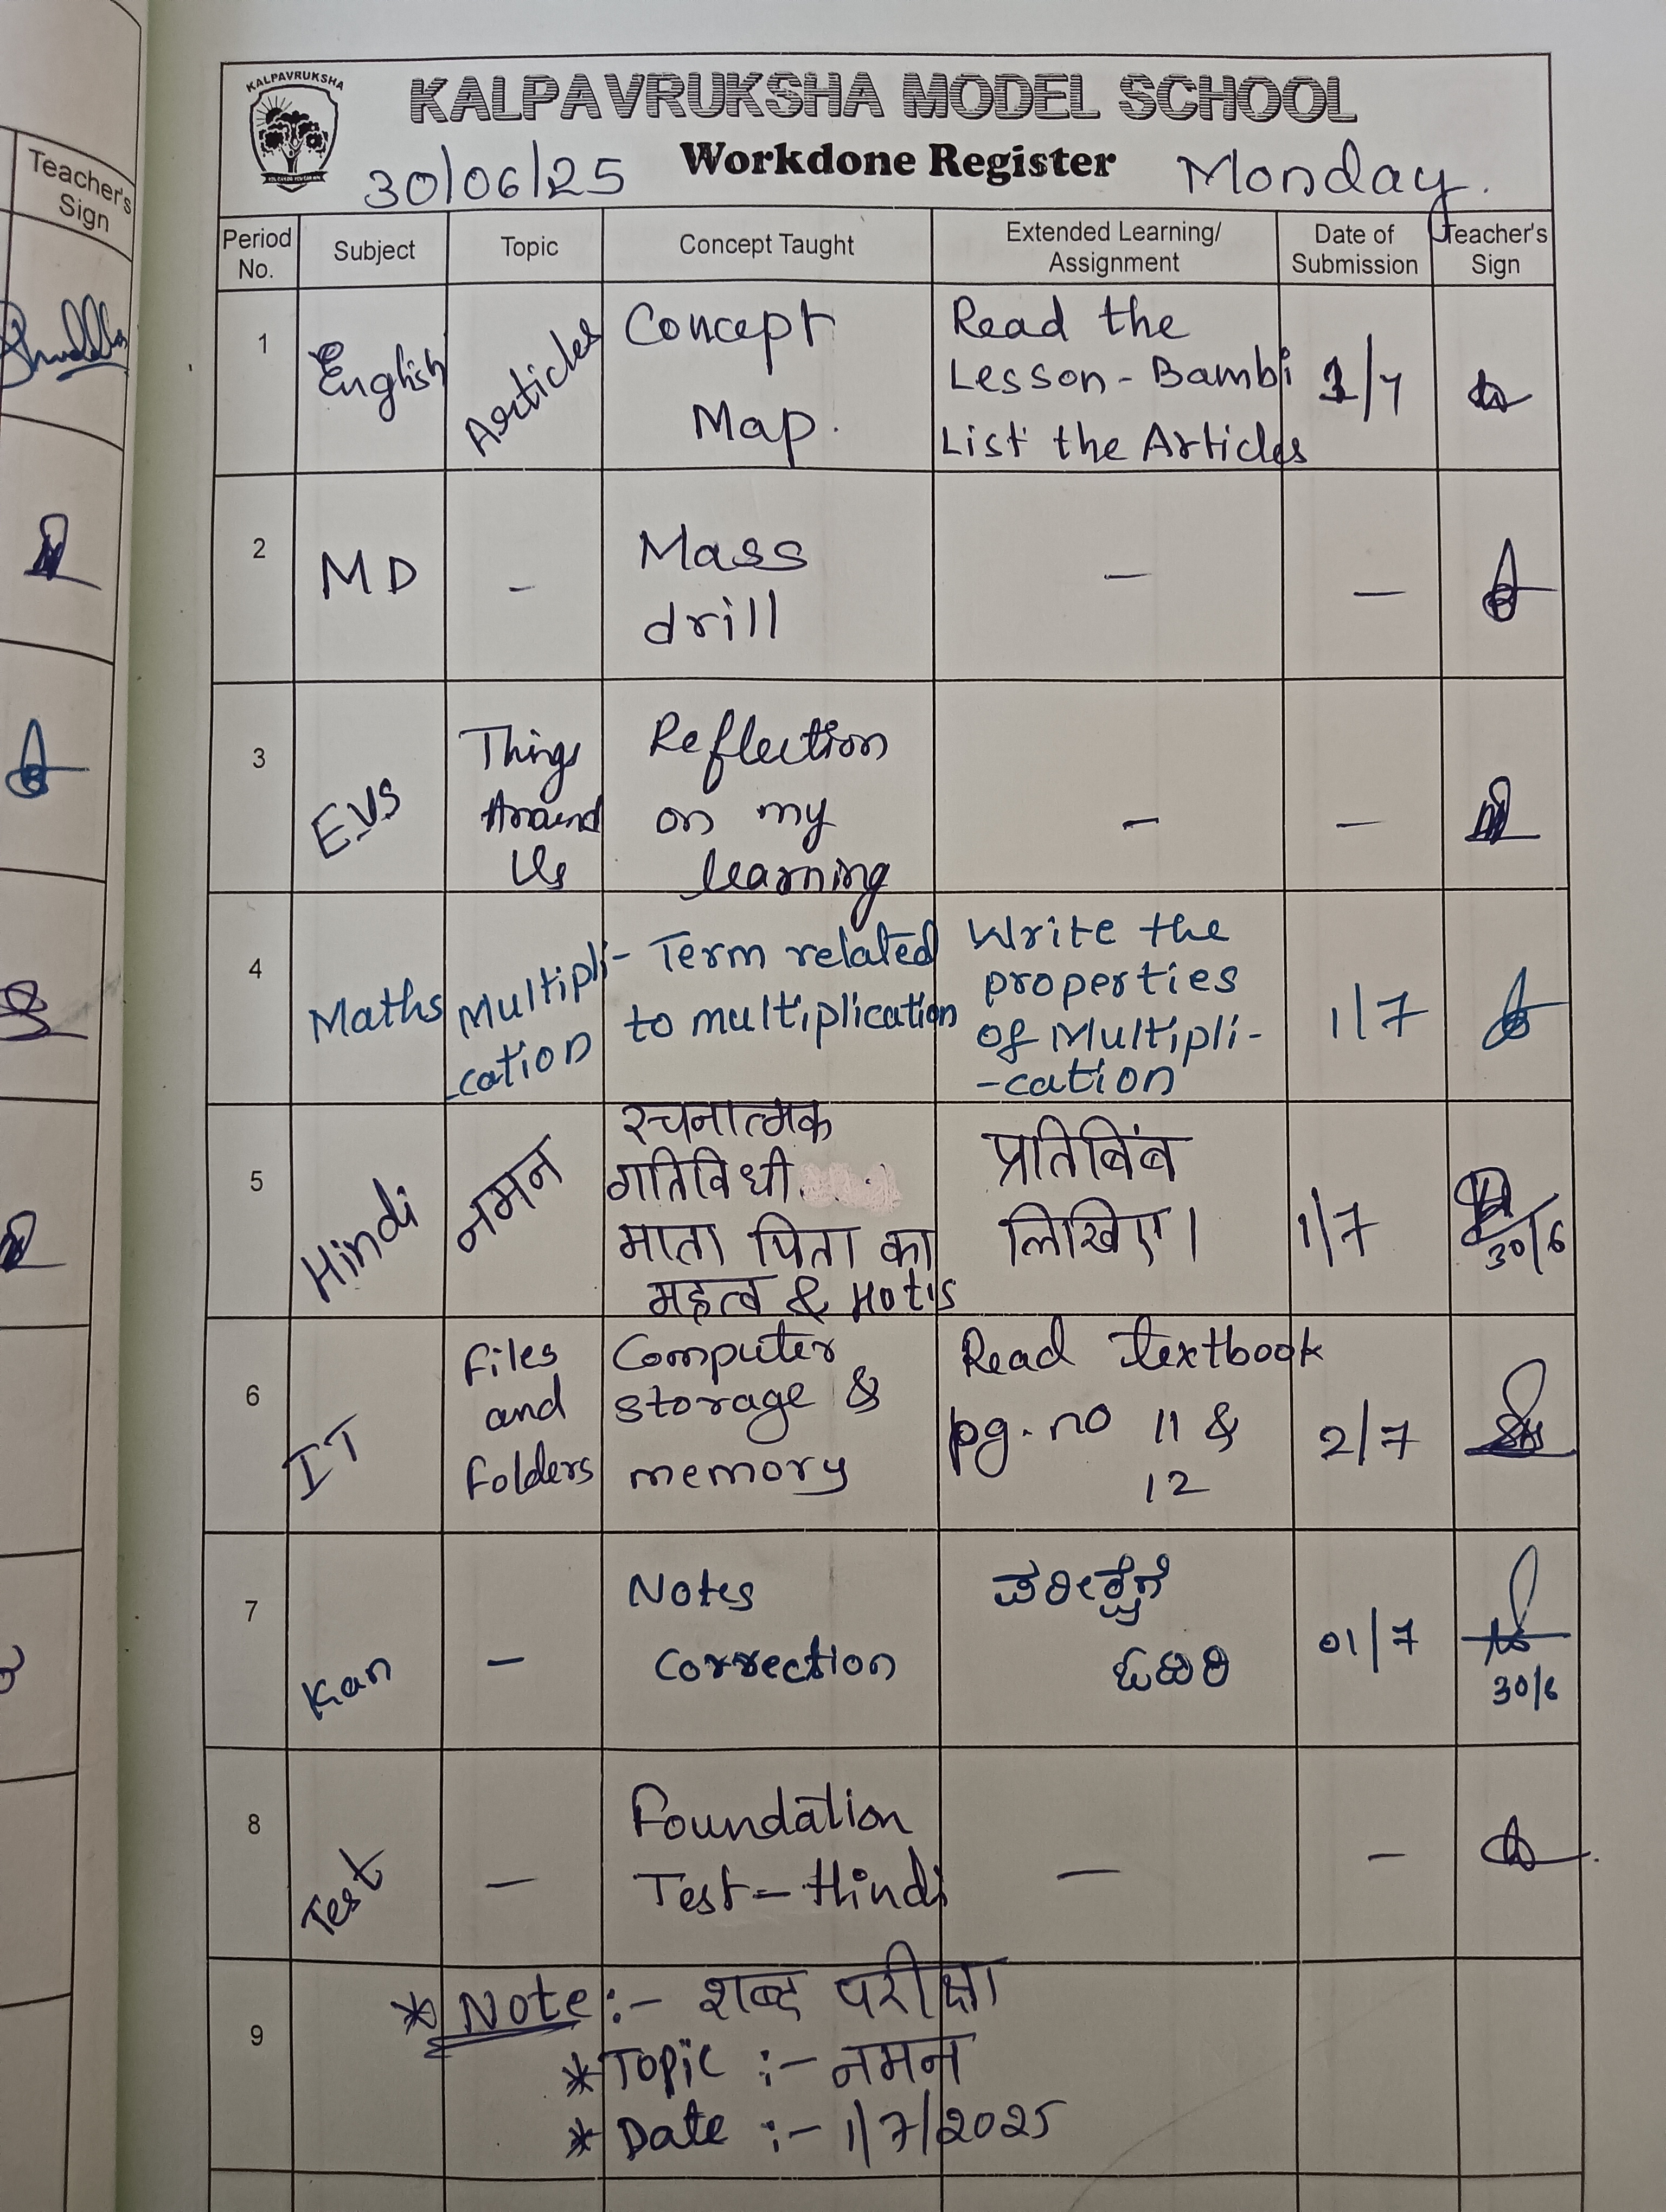 Teacher's
Sign
KALPAVRUKSHA
KALPAVRUKSHA MODEL SCHOOL
30/06/25 Workdone Register Monday.
Period No. Subject Topic Concept Taught Extended Learning/ Assignment Date of Submission Teacher's Sign
1 English Articles Concept Map. Read the Lesson - Bambi List the Articles 1/7
2 MD - Mass drill - -
3 EVS Things Around Us Reflection on my learning - -
4 Maths Multipli-cation Term related to multiplication Write the properties of Multipli-cation 1/7
5 Hindi नमन रचनात्मक गतिविधी माता पिता का महत्व & Hot's प्रतिबिंब लिखिए। 1/7 30/6
6 IT Files and Folders Computer storage & memory Read textbook pg. no 11 & 12 2/7
7 Kan - Notes Correction ಪರೀಕ್ಷೆಗೆ ಓದಿರಿ 01/7 30/6
8 Test - Foundation Test - Hindi - -
9 * Note :- शब्द परीक्षा
* Topic :- नमन
* Date :- 1/7/2025